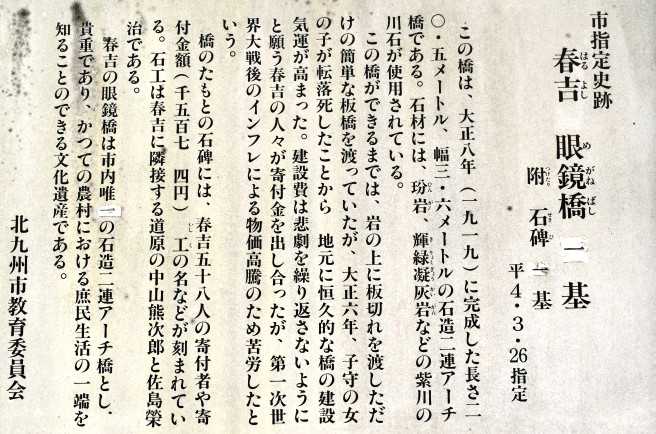 市指定史跡
春吉 眼鏡橋 一基
はる よし め がね ばし
附 石碑 一基
つけたり せき ひ
平4・3・26指定
この橋は、大正八年（一九一九）に完成した長さ二
〇・五メートル、幅三・六メートルの石造二連アーチ
橋である。石材には、玢岩、輝緑凝灰岩などの紫川の
川石が使用されている。
この橋ができるまでは、岩の上に板切れを渡しただ
けの簡単な板橋を渡っていたが、大正六年、子守の女
の子が転落死したことから 地元に恒久的な橋の建設
気運が高まった。建設費は悲劇を繰り返さないように
と願う春吉の人々が寄付金を出し合ったが、第一次世
界大戦後のインフレによる物価高騰のため苦労したと
いう。
橋のたもとの石碑には、春吉五十八人の寄付者や寄
付金額（千五百七 四円） 工の名などが刻まれてい
る。石工は春吉に隣接する道原の中山熊次郎と佐島榮
治である。
春吉の眼鏡橋は市内唯一の石造二連アーチ橋とし、
貴重であり、かつての農村における庶民生活の一端を
知ることのできる文化遺産である。
北九州市教育委員会